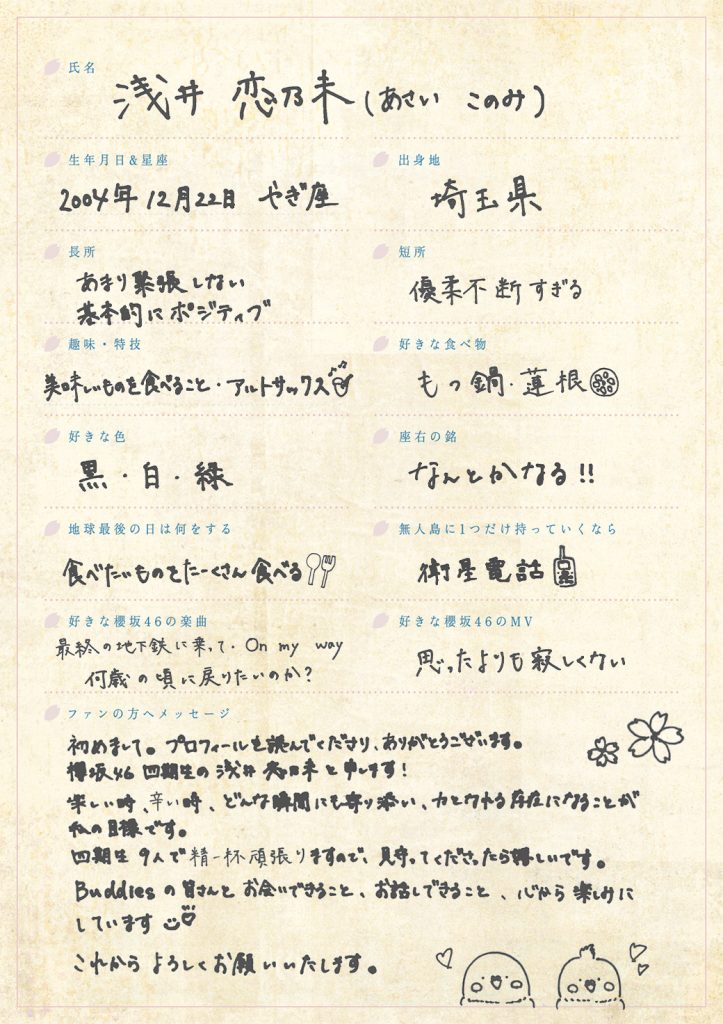 氏名
浅井 恋乃未(あさい このみ)
生年月日&星座
2004年12月22日 やぎ座
出身地
埼玉県
長所
あまり緊張しない
基本的にポジティブ
短所
優柔不断すぎる
趣味・特技
美味しいものを食べること・アルトサックス
好きな食べ物
もつ鍋・蓮根
好きな色
黒・白・緑
座右の銘
なんとかなる!!
地球最後の日は何をする
食べたいものをたーくさん食べる
無人島に1つだけ持っていくなら
衛星電話
好きな櫻坂46の楽曲
最終の地下鉄に乗って・On my way
何歳の頃に戻りたいのか?
好きな櫻坂46のMV
思ったよりも寂しくない
ファンの方へメッセージ
初めまして。プロフィールを読んでくださり、ありがとうございます。
櫻坂46 四期生の浅井 恋乃未と申します!
楽しい時、辛い時、どんな瞬間にも寄り添い、力となれる存在になることが
私の目標です。
四期生 9人で精一杯頑張りますので、見守ってくださったら嬉しいです。
Buddiesの皆さんとお会いできること、お話しできること、心から楽しみに
しています
これからよろしくお願いいたします。